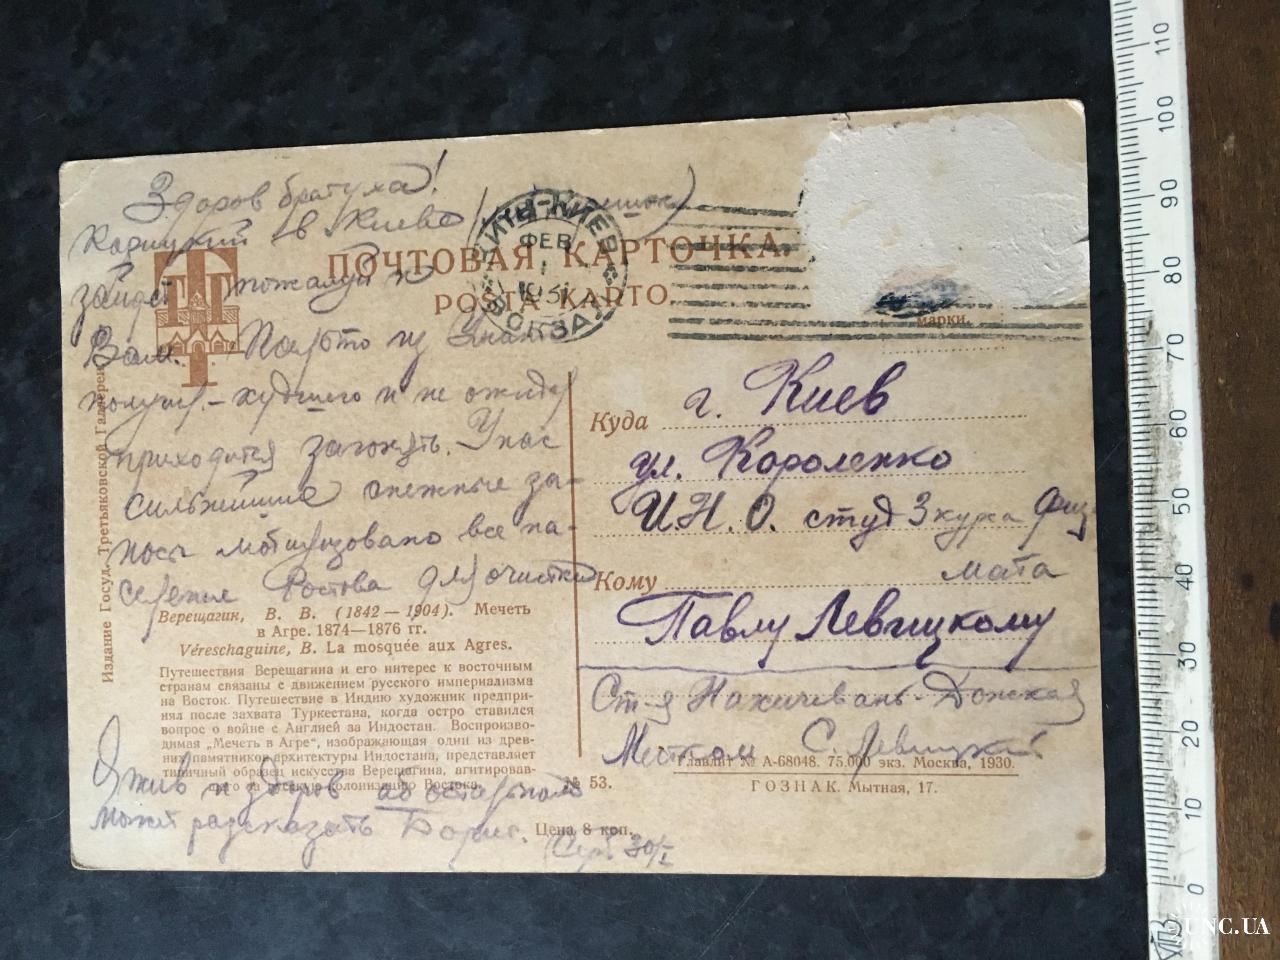 Здоров братуха!
Карицкий в Киеве
зайдет пожалуй к
Вам. Пальто из
получил - худшего и не ожидал
приходится загонять. У нас
сильнейшие снежные за-
носы мобилизовано все на-
селение Ростова для очистки
Я жив и здоров об остальном
может рассказать Борис.
Серг. 30/I
ПОЧТОВАЯ КАРТОЧКА
POŜTA KARTO
ФЕВ
ВОКЗАЛ
марки.
Куда г. Киев
ул. Короленко
И.Н.О. студ 3 курса Физ
мата
Кому
Павлу Левицкому
Ст-я Нахичевань-Донская
Местком С. Левицкий
Издание Госуд. Третьяковской Галлереи
Верещагин, В. В. (1842 — 1904). Мечеть
в Агре. 1874—1876 гг.
Véreschaguine, B. La mosquée aux Agres.
Путешествия Верещагина и его интерес к восточным
странам связаны с движением русского империализма
на Восток. Путешествие в Индию художник предпри-
нял после захвата Туркестана, когда остро ставился
вопрос о войне с Англией за Индостан. Воспроизво-
димая „Мечеть в Агре“, изображающая один из древ-
них памятников архитектуры Индостана, представляет
типичный образец искусства Верещагина, агитировав-
шего за русскую колонизацию Востока.
№ 53.
Цена 8 коп.
Главлит № А-68048. 75.000 экз. Москва, 1930.
ГОЗНАК. Мытная, 17.
110
100
90
80
70
60
50
40
30
20
10
0
UNC.UA